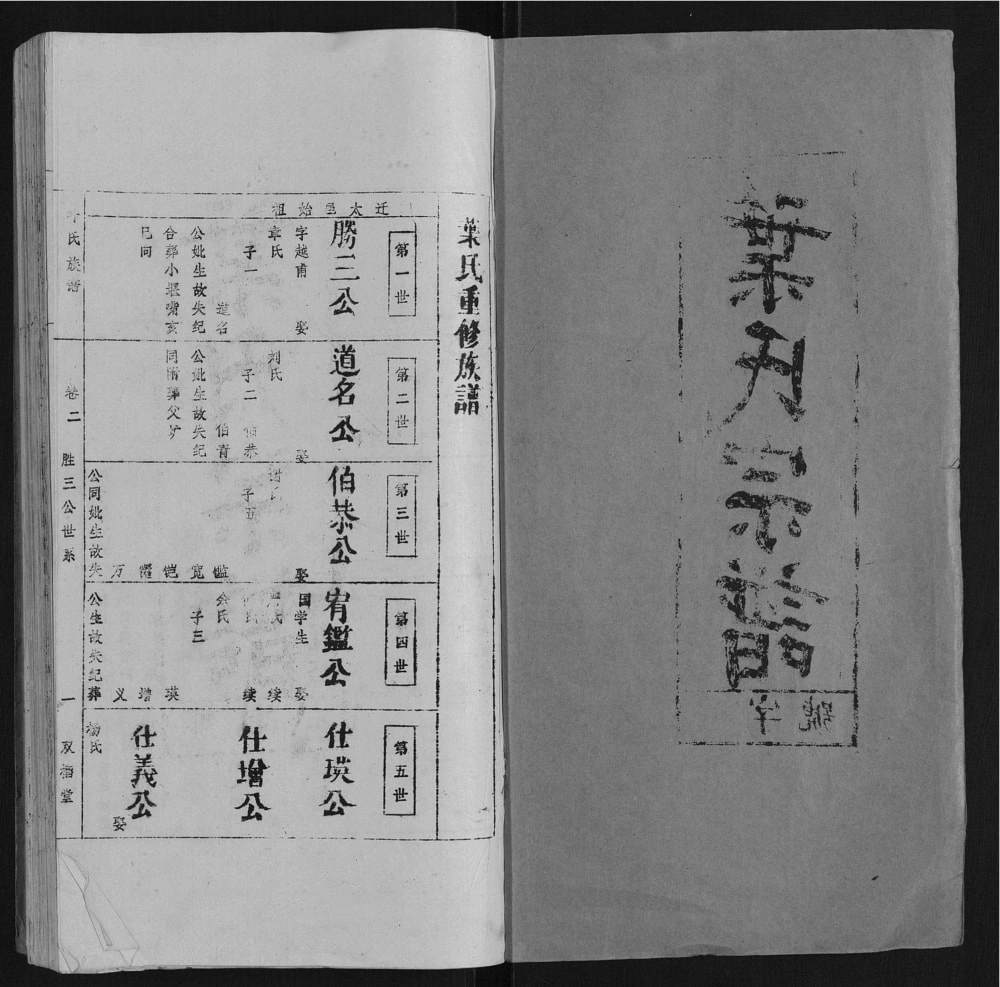 葉氏宗譜
字號
葉氏重修族譜
迁太邑始祖
第一世
勝三公
字越甫 娶
章氏
子一
道名
公妣生故失纪
合葬小堰嘴亥
巳向
第二世
道名公
娶
刘氏
子二 伯恭
伯青
公妣生故失纪
同葬父圹
第三世
伯恭公
娶
子
鑑
宽
铠
万
公同妣生故失
第四世
宥鑑公
国学生 娶
氏 续
续
余氏
子三
瑛
增
义
公生故失纪葬
第五世
仕瑛公
仕增公
仕義公
娶
杨氏
氏族谱
卷二
胜三公世系
一
双
堂